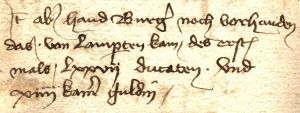 It aber hand Burg noch vorhanden
das von Lampten kam des ersten
mals / Lxxvij ducaten . vnd
xiiij kamer guldin